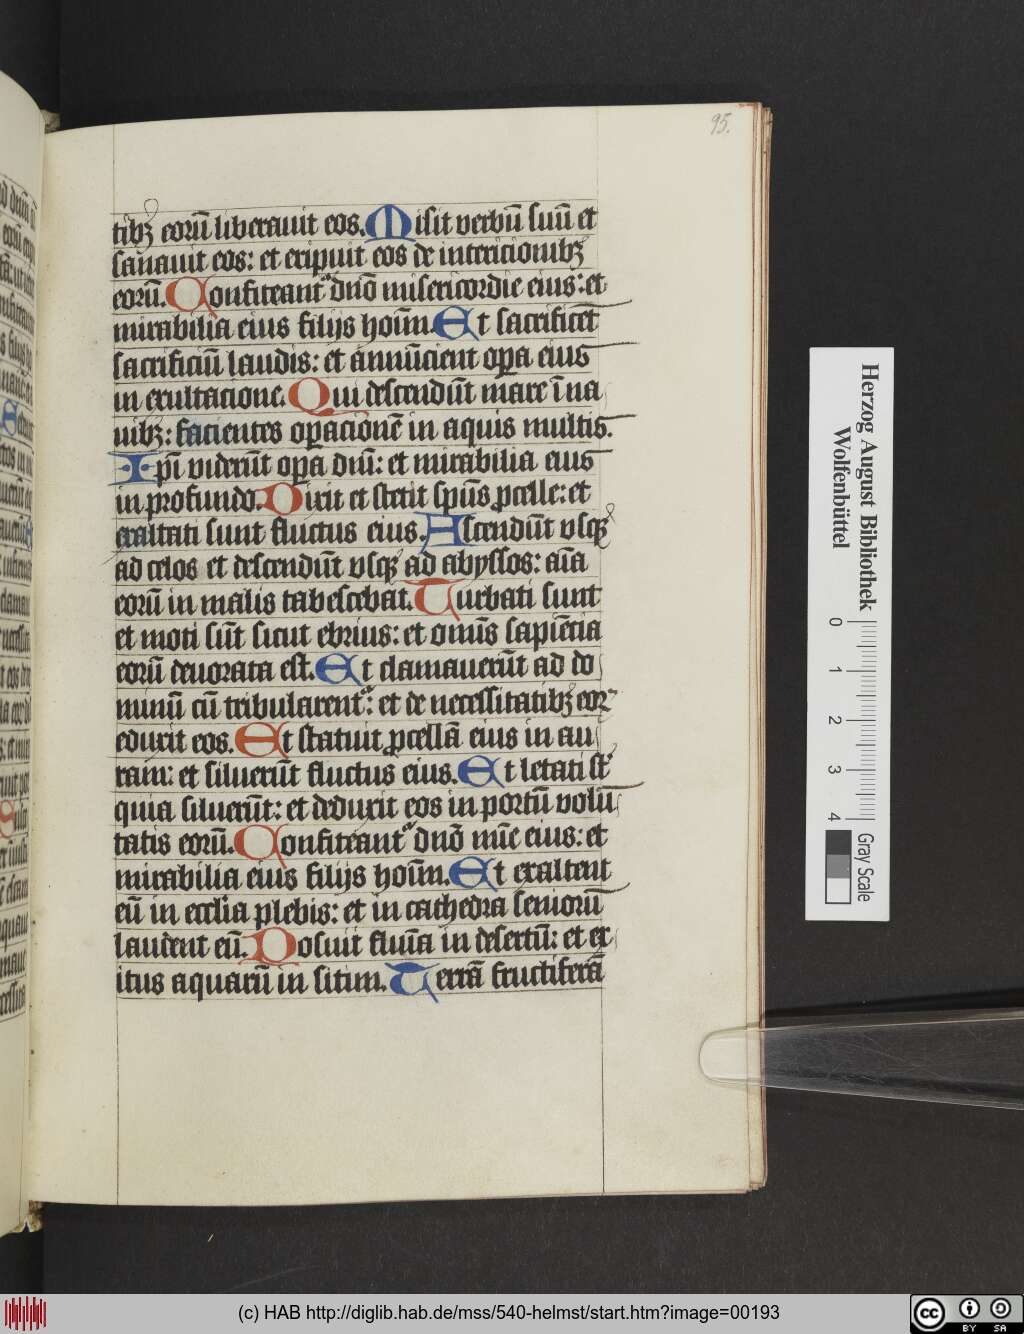 95.
tibꝫ eorū liberauit eos. Misit verbū suū et
sanauit eos: et eripuit eos de intericionibꝫ
eorū. Confiteant᷑ dn̄o misericordie eius: et
mirabilia eius filijs hoīm. Et sacrificēt
sacrificiū laudis: et annūcient oꝑa eius
in exultacione. Qui descendūt mare ī na
uibꝫ: facientes oꝑacionē in aquis multis.
Ipī viderūt oꝑa dn̄i: et mirabilia eius
in profundo. Dixit et stetit sp̄us ꝓcelle: et
exaltati sunt fluctus eius. Ascendūt vsqꝫ
ad celos et descendūt vsqꝫ ad abyssos: aīa
eorū in malis tabescebat. Turbati sunt
et moti sūt sicut ebrius: et omīs sapiētia
eorū deuorata est. Et clamauerūt ad do
minū cū tribularent᷑: et de necessitatibꝫ eoꝝ
eduxit eos. Et statuit ꝓcellā eius in au
ram: et siluerūt fluctus eius. Et letati st̄
quia siluerūt: et deduxit eos in portū volū
tatis eorū. Confiteant᷑ dn̄o mīe eius: et
mirabilia eius filijs hoīm. Et exaltent
eū in eccl̄ia plebis: et in cathedra seniorū
laudent eū. Posuit flūīa in desertū: et ex
itus aquarū in sitim. Terrā fructiferā
Herzog August Bibliothek
Wolfenbüttel
0 1 2 3 4
Gray Scale
(c) HAB http://diglib.hab.de/mss/540-helmst/start.htm?image=00193
cc BY SA